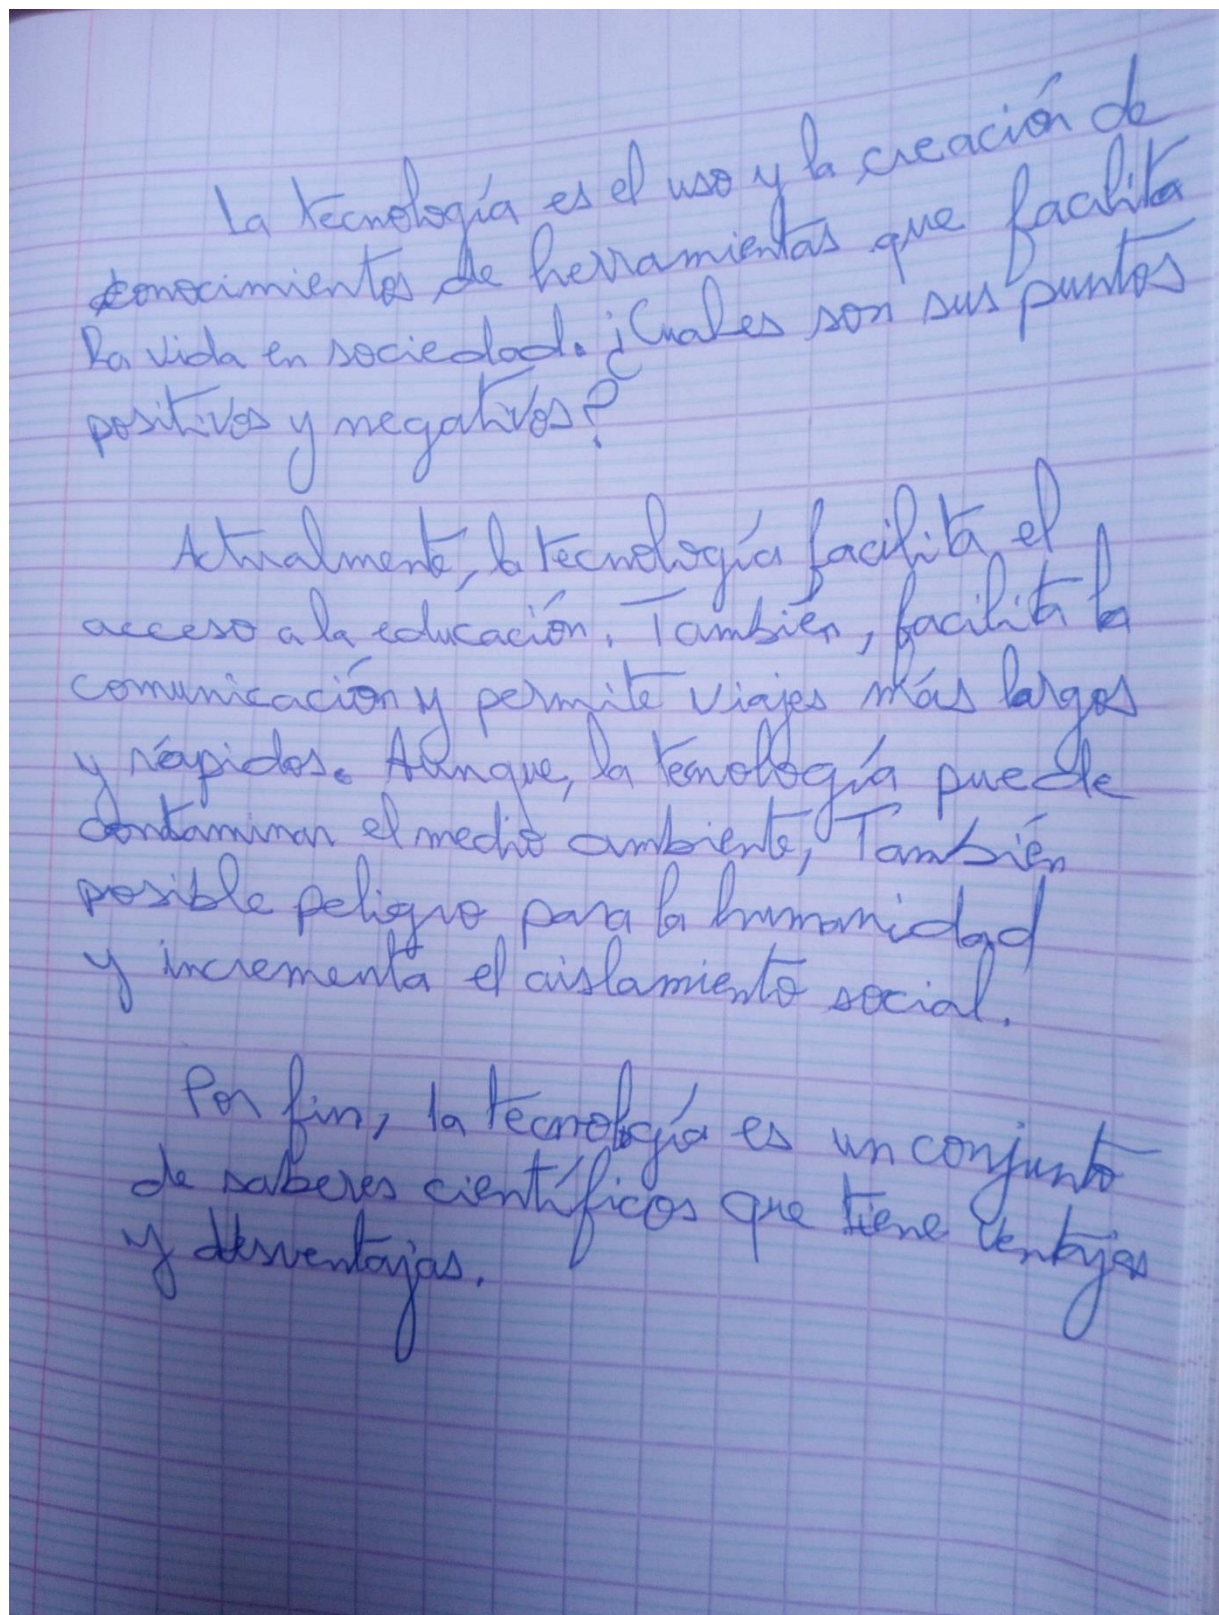 La tecnología es el uso y la creación de
conocimientos de herramientas que facilita
la vida en sociedad. ¿Cuales son sus puntos
positivos y negativos?
Actualmente, la tecnología facilita el
acceso a la educación. También, facilita la
comunicación y permite viajes más largos
y rápidos. Aunque, la tecnología puede
contaminar el medio ambiente, También
posible peligro para la humanidad
y incrementa el aislamiento social.
Por fin, la tecnología es un conjunto
de saberes científicos que tiene ventajas
y desventajas.